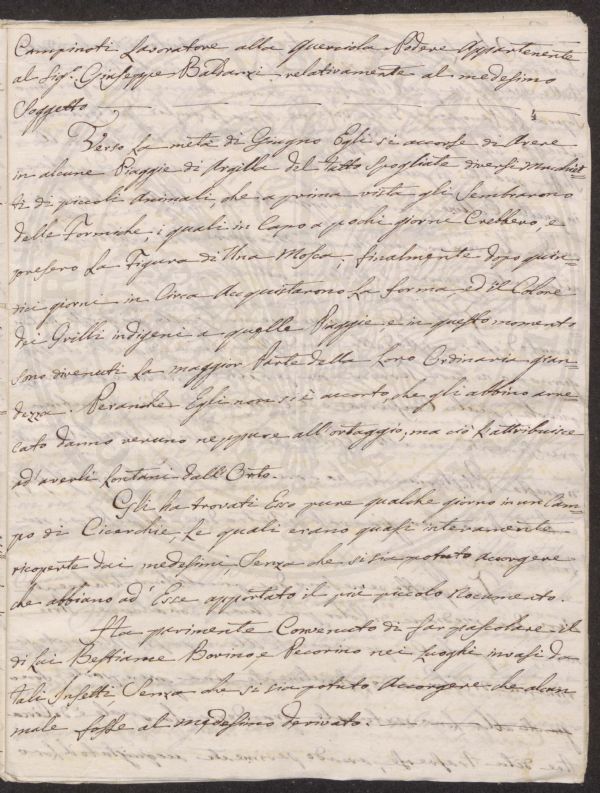 Campinoti Lavoratore alla Querciola Podere Appartenente
al Sig.r Giuseppe Baldanzi relativamente al medesimo
Soggetto.
4
Verso la metà di Giugno Egli si accorse di Avere
in alcune Piaggie di Argilla del tutto spogliate diversi Mucchiet=
ti di piccoli Animali, che a prima vista gli Sembrarono
delle Formiche, i quali in Capo a pochi giorni Crebbero, e
presero la Figura di Una Mosca; finalmente dopo quin=
dici giorni in Circa Acquistarono la forma, ed il Colore
dei Grilli indigeni a quelle Piaggie e in questo momento
sono divenuti la maggior Parte della Loro Ordinaria gran=
dezza. Peranche Egli non si è accorto, che gli abbino arre
cato danno veruno neppure all'ortaggio; ma ciò l'attribuisce
ad' averli Lontani dall'Orto.
Gli ha trovati Esso pure qualche giorno in un Cam=
po di Cicerchie, le quali erano quasi interamente
ricoperte dai medesimi, Senza che si sia potuto accorgere
che abbiano ad' Esse apportato il più piccolo nocumento.
Ha parimente Convenuto di far pascolare il
di lui Bestiame Bovino e Pecorino nei Luoghi invasi da
tali Insetti Senza che si sia potuto Accorgere che alcun
male fosse al medesimo derivato.